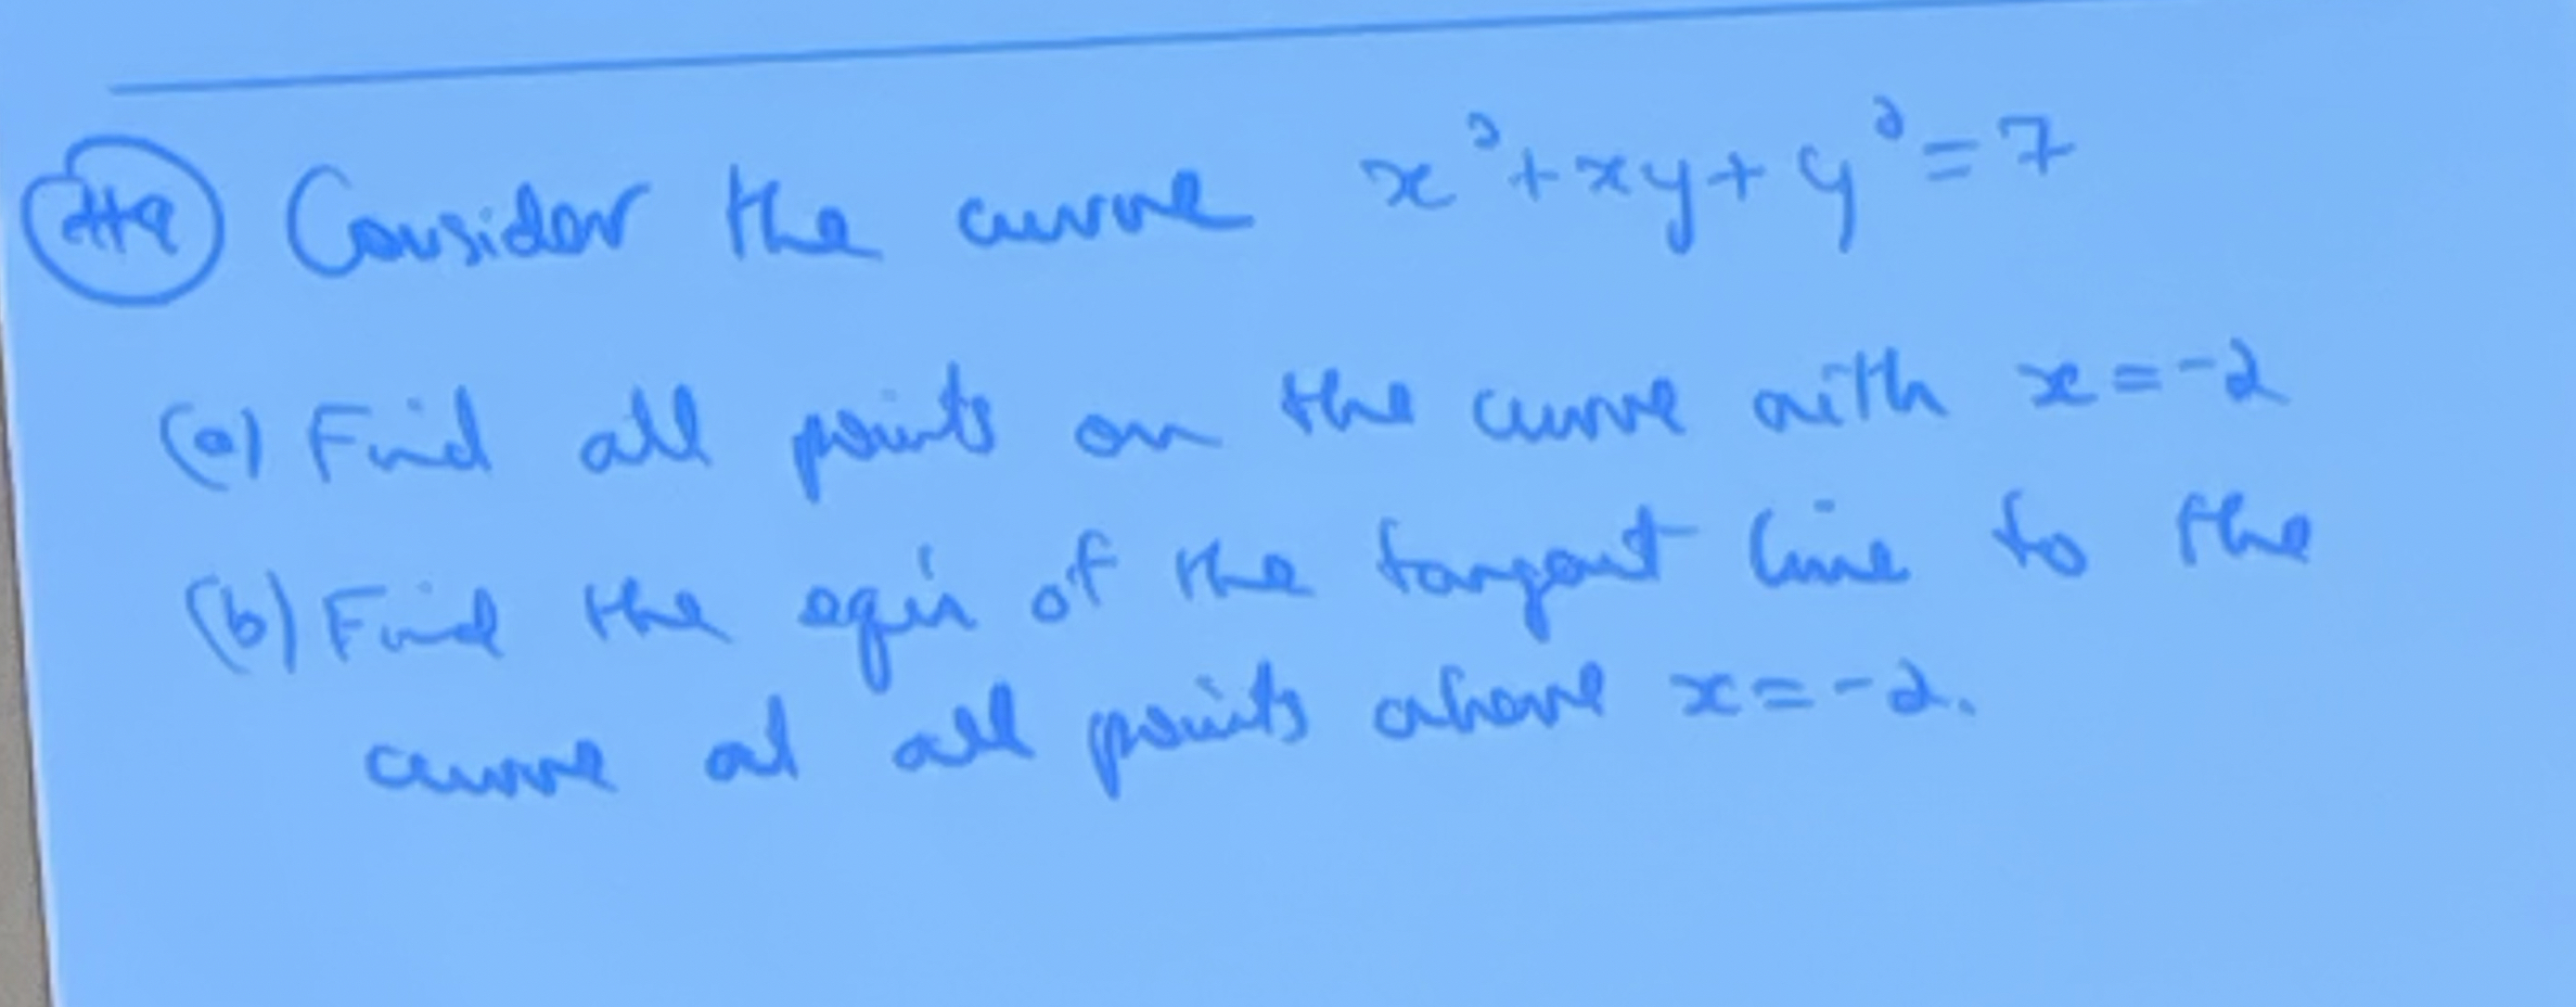 #9 Consider the curve x²+xy+y²=7
(a) Find all points on the curve with x=-2
(b) Find the eqin of the tangent line to the
curve at all points above x=-2.